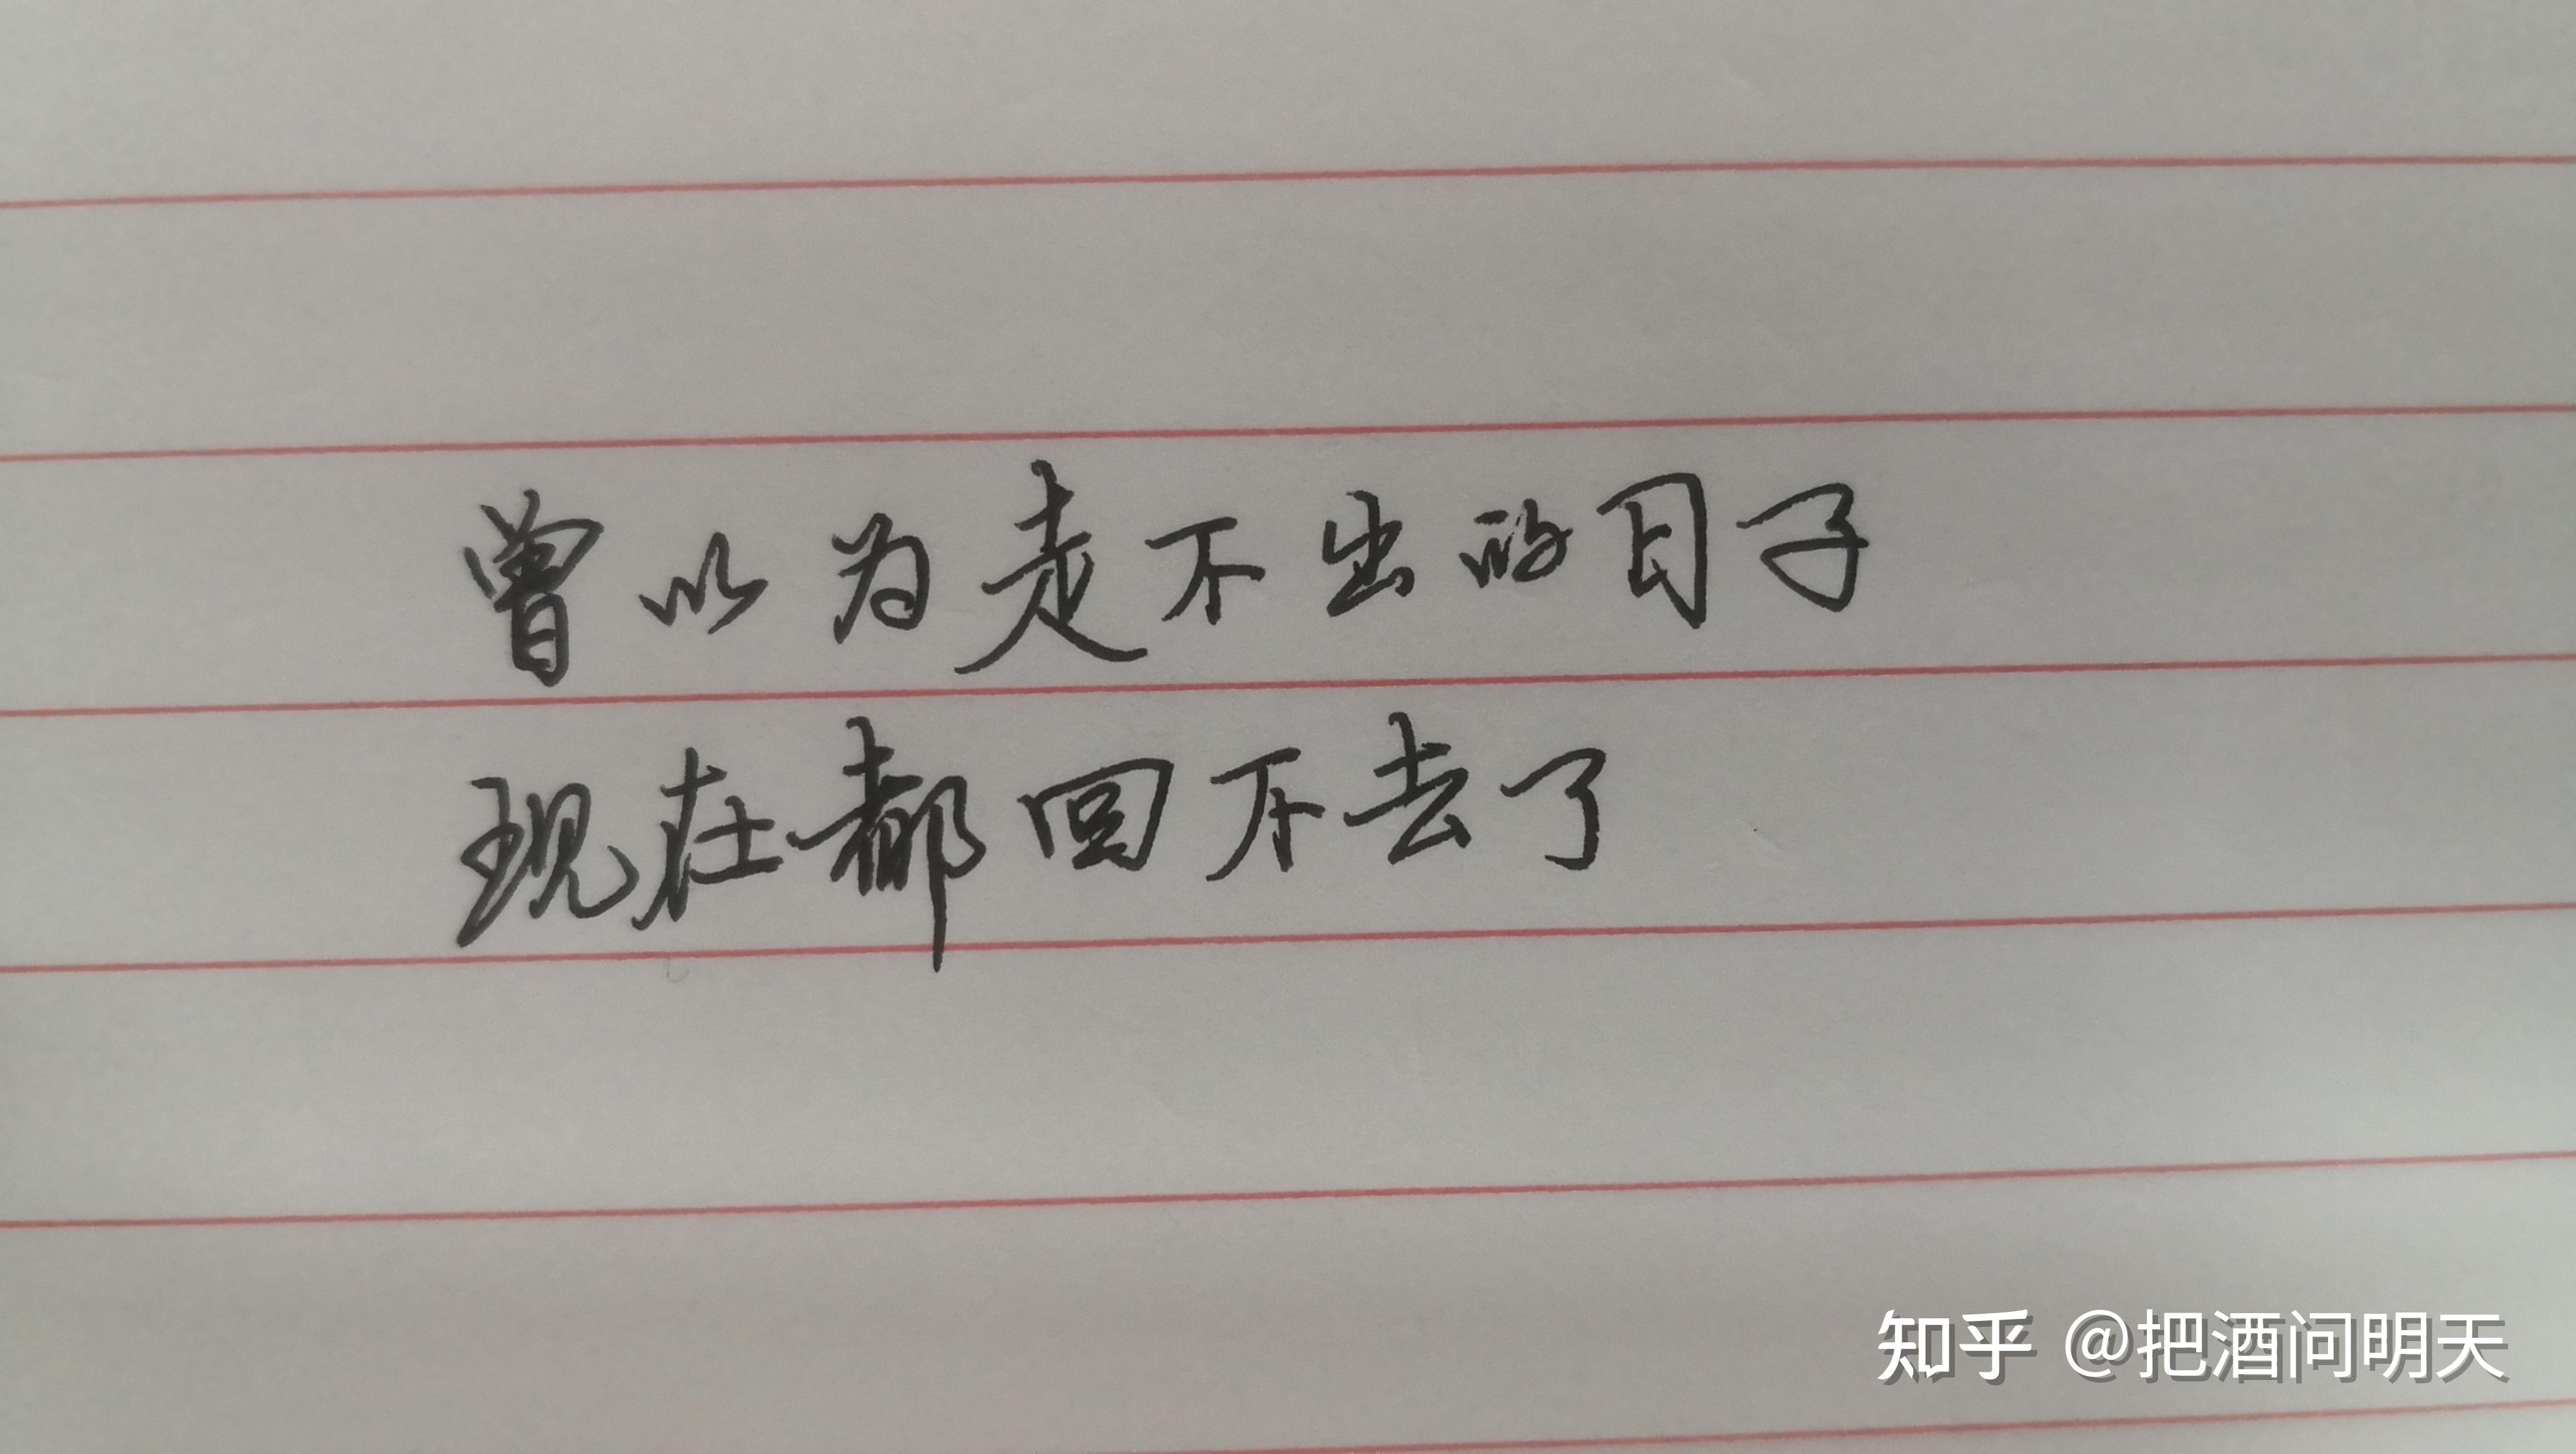 曾以为走不出的日子
现在都回不去了
知乎 @把酒问明天